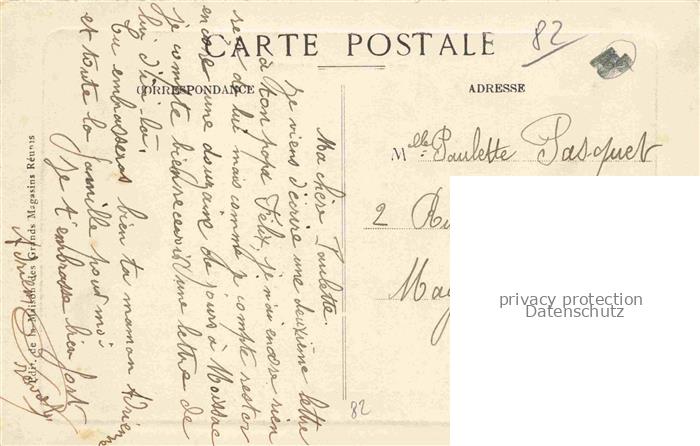 82
CARTE POSTALE
CORRESPONDANCE
ADRESSE
Mlle Paulette Pasquet
2
Ma chère Paulette.
Je viens d'écrire une deuxième lettre
à ton papa Félix, je n'ai encore rien
reçu de lui mais comme je compte rester
encore une douzaine de jours à Moissac
je compte bien recevoir une lettre de
lui d'ici là.
Tu embrasseras bien ta maman Adrien
et toute la famille pour moi
Je t'embrasse bien fort
Adrien
Édit. de la Maison des Grands Magasins Réunis
82
privacy protection
Datenschutz